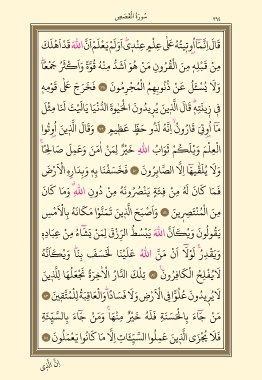 سُورَةُ الْقَصَصِ ٣٩٤
قَالَ إِنَّمَا أُوتِيتُهُ عَلَى عِلْمٍ عِنْدِي أَوَلَمْ يَعْلَمْ أَنَّ اللَّهَ قَدْ أَهْلَكَ
مِنْ قَبْلِهِ مِنَ الْقُرُونِ مَنْ هُوَ أَشَدُّ مِنْهُ قُوَّةً وَأَكْثَرُ جَمْعًا
وَلَا يُسْئَلُ عَنْ ذُنُوبِهِمُ الْمُجْرِمُونَ ۝ فَخَرَجَ عَلَى قَوْمِهِ
فِي زِينَتِهِ قَالَ الَّذِينَ يُرِيدُونَ الْحَيٰوةَ الدُّنْيَا يَالَيْتَ لَنَا مِثْلَ
مَا أُوتِيَ قَارُونُ إِنَّهُ لَذُو حَظٍّ عَظِيمٍ ۝ وَقَالَ الَّذِينَ أُوتُوا
الْعِلْمَ وَيْلَكُمْ ثَوَابُ اللَّهِ خَيْرٌ لِمَنْ اٰمَنَ وَعَمِلَ صَالِحًا
وَلَا يُلَقّٰيهَا إِلَّا الصَّابِرُونَ ۝ فَخَسَفْنَا بِهِ وَبِدَارِهِ الْأَرْضَ
فَمَا كَانَ لَهُ مِنْ فِئَةٍ يَنْصُرُونَهُ مِنْ دُونِ اللَّهِ وَمَا كَانَ
مِنَ الْمُنْتَصِرِينَ ۝ وَأَصْبَحَ الَّذِينَ تَمَنَّوْا مَكَانَهُ بِالْأَمْسِ
يَقُولُونَ وَيْكَأَنَّ اللَّهَ يَبْسُطُ الرِّزْقَ لِمَنْ يَشَاءُ مِنْ عِبَادِهِ
وَيَقْدِرُ لَوْلَا أَنْ مَنَّ اللَّهُ عَلَيْنَا لَخَسَفَ بِنَا وَيْكَأَنَّهُ
لَا يُفْلِحُ الْكَافِرُونَ ۝ تِلْكَ الدَّارُ الْاٰخِرَةُ نَجْعَلُهَا لِلَّذِينَ
لَا يُرِيدُونَ عُلُوًّا فِي الْأَرْضِ وَلَا فَسَادًا وَالْعَاقِبَةُ لِلْمُتَّقِينَ ۝
مَنْ جَاءَ بِالْحَسَنَةِ فَلَهُ خَيْرٌ مِنْهَا وَمَنْ جَاءَ بِالسَّيِّئَةِ
فَلَا يُجْزَى الَّذِينَ عَمِلُوا السَّيِّئَاتِ إِلَّا مَا كَانُوا يَعْمَلُونَ ۝
إِنَّ الَّذِي